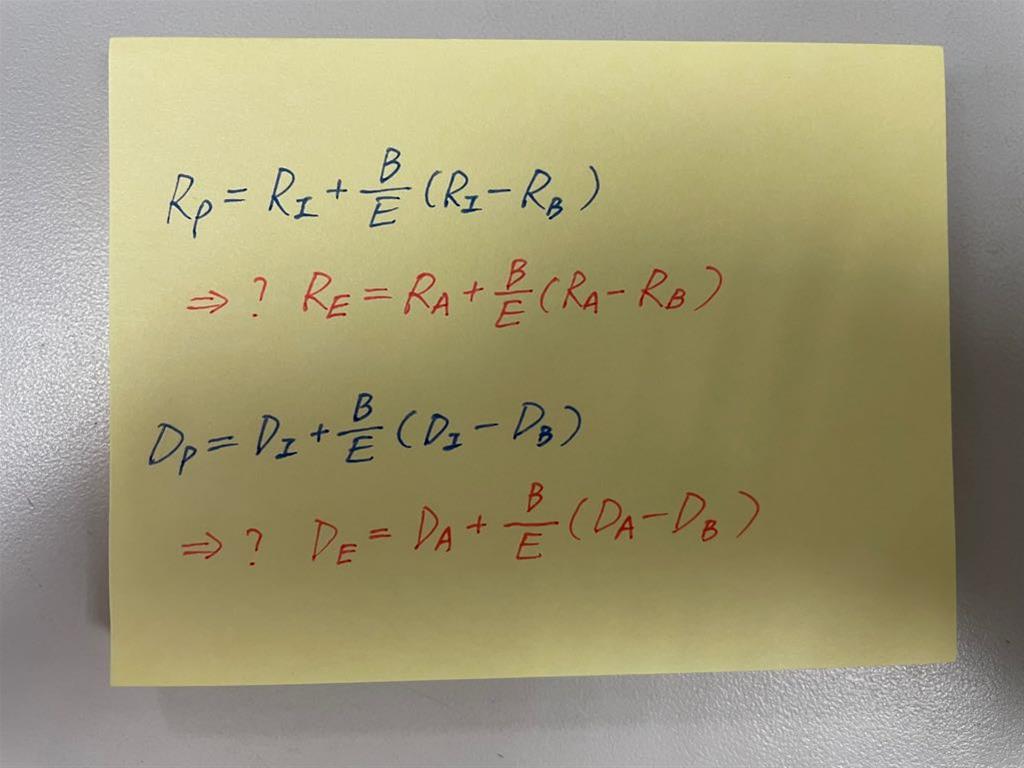 R_P = R_I + B/E (R_I − R_B)
⇒ ? R_E = R_A + B/E (R_A − R_B)
D_P = D_I + B/E (D_I − D_B)
⇒ ? D_E = D_A + B/E (D_A − D_B)